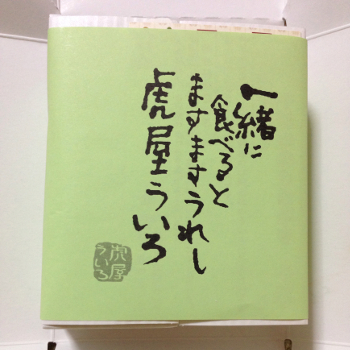 一緒に
食べると
ますますうれし
虎屋ういろ
虎屋
ういろ